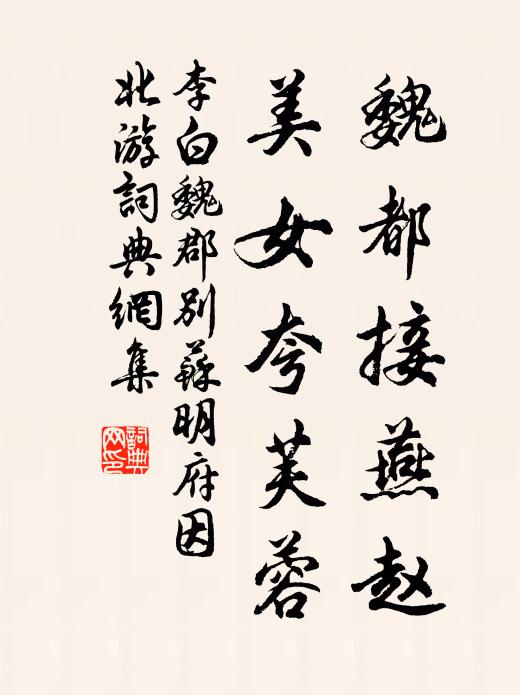 魏都接燕赵
美女夸芙蓉
李白魏郡别蘇明府因
北游詞典網集
詞典网印